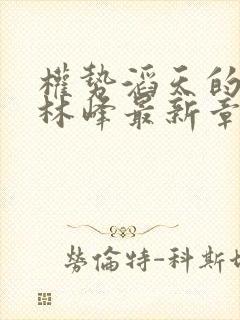 權勢滔天的
林峰最新章
勞倫特-科斯